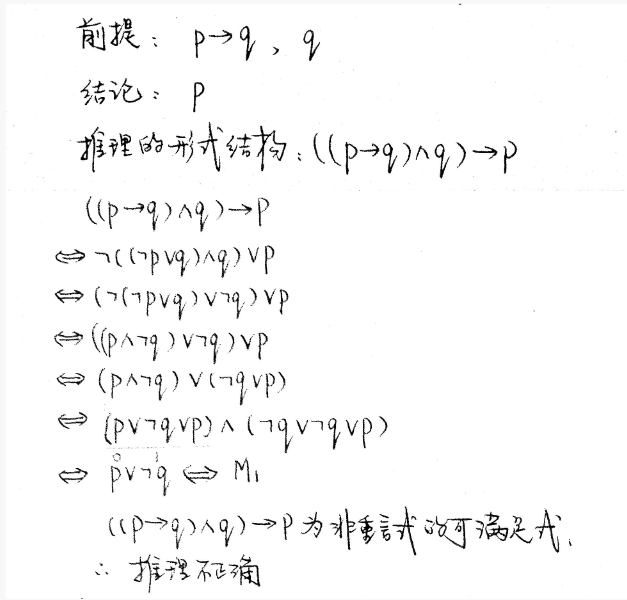 前提： p→q、q
结论： p
推理的形式结构：((p→q)∧q)→p
((p→q)∧q)→p
⇔ ¬((¬p∨q)∧q)∨p
⇔ (¬(¬p∨q)∨¬q)∨p
⇔ ((p∧¬q)∨¬q)∨p
⇔ (p∧¬q)∨(¬q∨p)
⇔ (p∨¬q∨p)∧(¬q∨¬q∨p)
0 1
⇔ p∨¬q ⇔ M₁
((p→q)∧q)→p 为非重言式的可满足式.
∴ 推理不正确